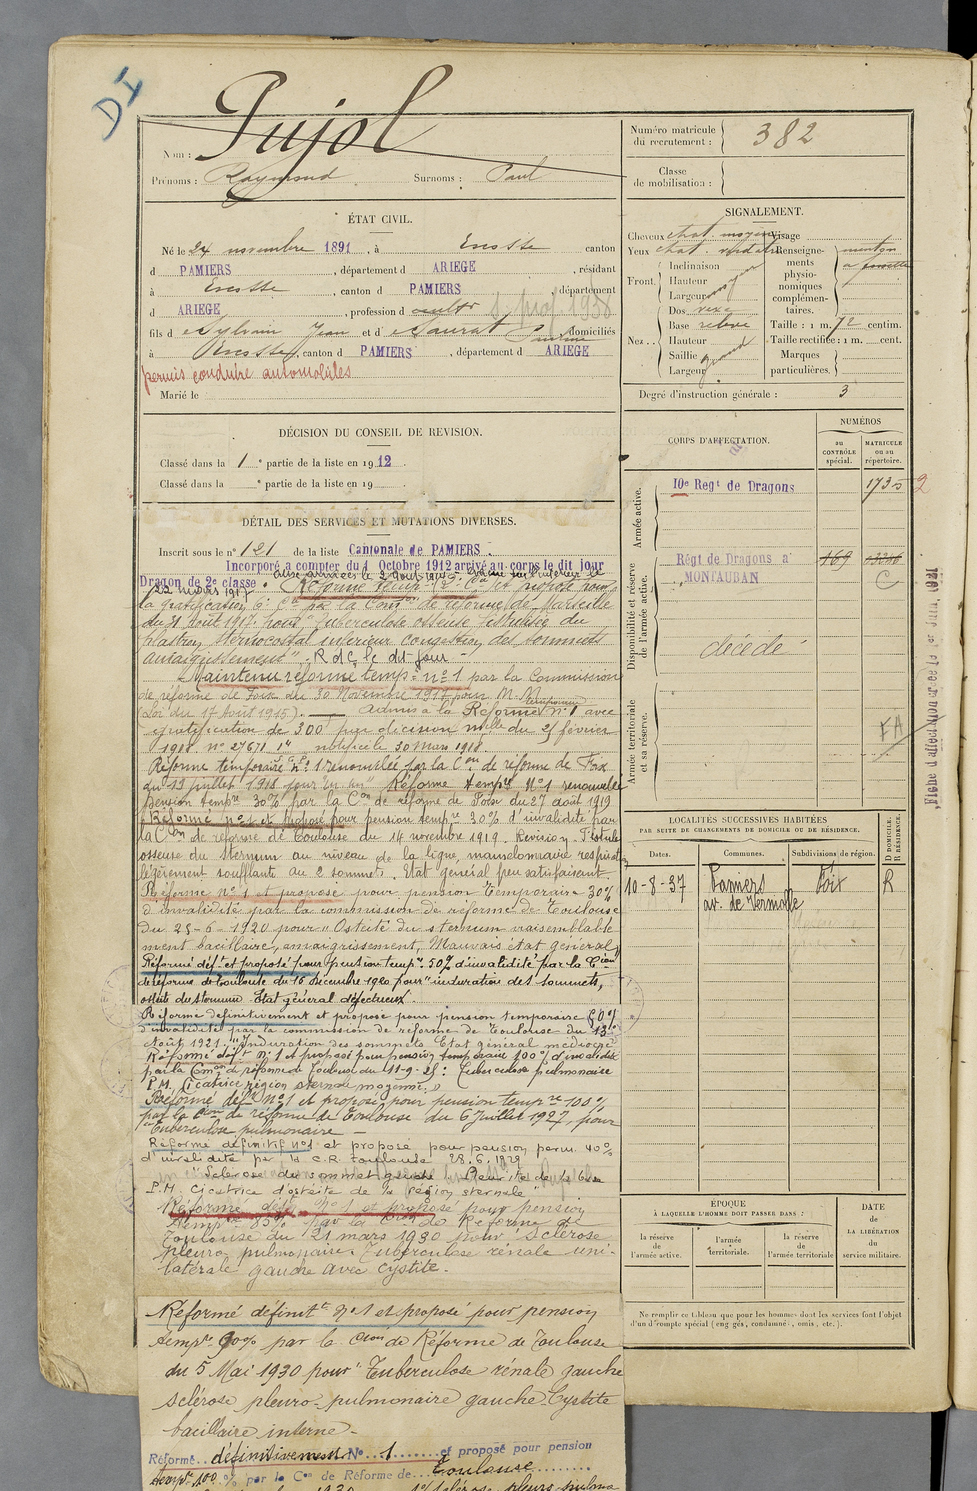 DI
Pujol
Nom :
Prénoms : Raymond Surnoms : Paul
ÉTAT CIVIL.
Né le 24 novembre 1891, à Escosse canton
d PAMIERS, département d ARIEGE, résidant
à Escosse, canton d PAMIERS, département
d ARIEGE, profession d cultr s. prof. 1938
fils d Sylvain Jean et d Saurat Pauline domiciliés
à Escosse, canton d PAMIERS, département d ARIEGE
permis conduire automobiles
Marié le
DÉCISION DU CONSEIL DE REVISION.
Classé dans la 1e partie de la liste en 1912.
Classé dans la e partie de la liste en 19
DÉTAIL DES SERVICES ET MUTATIONS DIVERSES.
Inscrit sous le n° 121 de la liste Cantonale de PAMIERS.
Incorporé à compter du 1 Octobre 1912 arrivé au corps le dit jour
Dragon de 2e classe. aux armées le 2 Août 1914
22 mars 1917 Réforme temp. 2 et proposé pour
la gratification 6e Cie par la Comon de réforme de Marseille
du 31 Août 1917 pour "tuberculose osseuse fistulisée du
plastron sternocostal inférieur congestion des sommets
amaigrissement" R d C le dit jour
Maintenu réformé temp. n° 1 par la Commission
de réforme de Foix du 30 Novembre 1917 pour M. M.
(Loi du 17 Août 1915). Admis à la Réforme temporaire N° 1 avec
gratification de 300f par décision mlle du 25 février
1918 n° 27671 notifié le 30 mars 1918
Réforme temporaire n° 1 renouvelée par la Con de réforme de Foix
du 19 juillet 1918 pour un an" Réforme tempre N° 1 renouvelée
pension tempre 30% par la Con de réforme de Foix du 27 août 1919
Réformé n° 1 et proposé pour pension tempre 30% d'invalidité par
la Con de réforme de Toulouse du 14 novembre 1919. Revision Fistule
osseuse du sternum au niveau de la ligne mamelonnaire respiration
légèrement soufflante au 2 sommets. Etat général peu satisfaisant.
Réformé n° 1 et proposé pour pension temporaire 30%
d'invalidité par la commission de réforme de Toulouse
du 25-6-1920 pour "Ostéité du sternum vraisemblable
ment bacillaire, amaigrissement, Mauvais état général,
Réformé déft et proposé pour pension tempre 50% d'invalidité par la Cion
de réforme de Toulouse du 16 Décembre 1920 pour "induration des sommets,
ostéite du sternum. Etat général défectueux.
Réformé définitivement et proposé pour pension temporaire 80%
d'invalidité par la commission de réforme de Toulouse du 13
Août 1921. "Induration des sommets. Etat général médiocre"
Réformé déft n° 1 et proposé pour pension temporaire 100% d'invalidité
par la Comon de réforme de Toulouse du 11-9-25 : Tuberculose pulmonaire
P.M. Cicatrice région sternale moyenne.
Réformé déft N° 1 et proposé pour pension tempre 100%
par la Cion de réforme de Toulouse du 6 Juillet 1927, pour
"Tuberculose pulmonaire
Réformé définitif n°1 et proposé pour pension perm. 40%
d'invalidité par la C.R. Toulouse 28.6.1929
"Sclérose du sommet gauche Pleurite de la base
P.M. Cicatrice d'ostéite de la région sternale"
Réformé déft N° 1 et proposé pour pension
tempre 85% par la Cion de Réforme de
Toulouse du 21 mars 1930 pour "Sclérose
pleuro-pulmonaire. Tuberculose rénale uni-
latérale gauche avec cystite.
Réformé définitt N° 1 et proposé pour pension
tempre 90% par la Cion de Réforme de Toulouse
du 5 Mai 1930 pour "Tuberculose rénale gauche
sclérose pleuro-pulmonaire gauche. Cystite
bacillaire interne.
Réformé définitivement N° 1 et proposé pour pension
tempre 100 % par la Con de Réforme de Toulouse
Numéro matricule du recrutement : 382
Classe de mobilisation :
SIGNALEMENT.
Cheveux chat. moyen Visage
Yeux chat. verdâtre
Front. Inclinaison
Hauteur moyen
Largeur
Nez.. Dos vexe
Base relevé
Hauteur
Saillie grand
Largeur
Renseignements physionomiques complémentaires. menton à fossette
Taille : 1 m. 72 centim.
Taille rectifiée : 1 m. cent.
Marques particulières.
Degré d'instruction générale : 3
CORPS D'AFFECTATION.
NUMÉROS
au CONTRÔLE spécial.
MATRICULE ou au répertoire.
Armée active.
10e Regt de Dragons 1735 2
Disponibilité et réserve de l'armée active.
Régt de Dragons à MONTAUBAN 169
C
décédé
Armée territoriale et sa réserve.
FA
LOCALITÉS SUCCESSIVES HABITÉES
PAR SUITE DE CHANGEMENTS DE DOMICILE OU DE RÉSIDENCE.
Dates. Communes. Subdivisions de région. D DOMICILE. R RÉSIDENCE.
10-8-37 Pamiers Foix R
av. de Vermolle
ÉPOQUE
À LAQUELLE L'HOMME DOIT PASSER DANS :
la réserve de l'armée active.
l'armée territoriale.
la réserve de l'armée territoriale
DATE de LA LIBÉRATION du service militaire.
Ne remplir ce tableau que pour les hommes dont les services font l'objet
d'un décompte spécial (engagés, condamnés, omis, etc.).